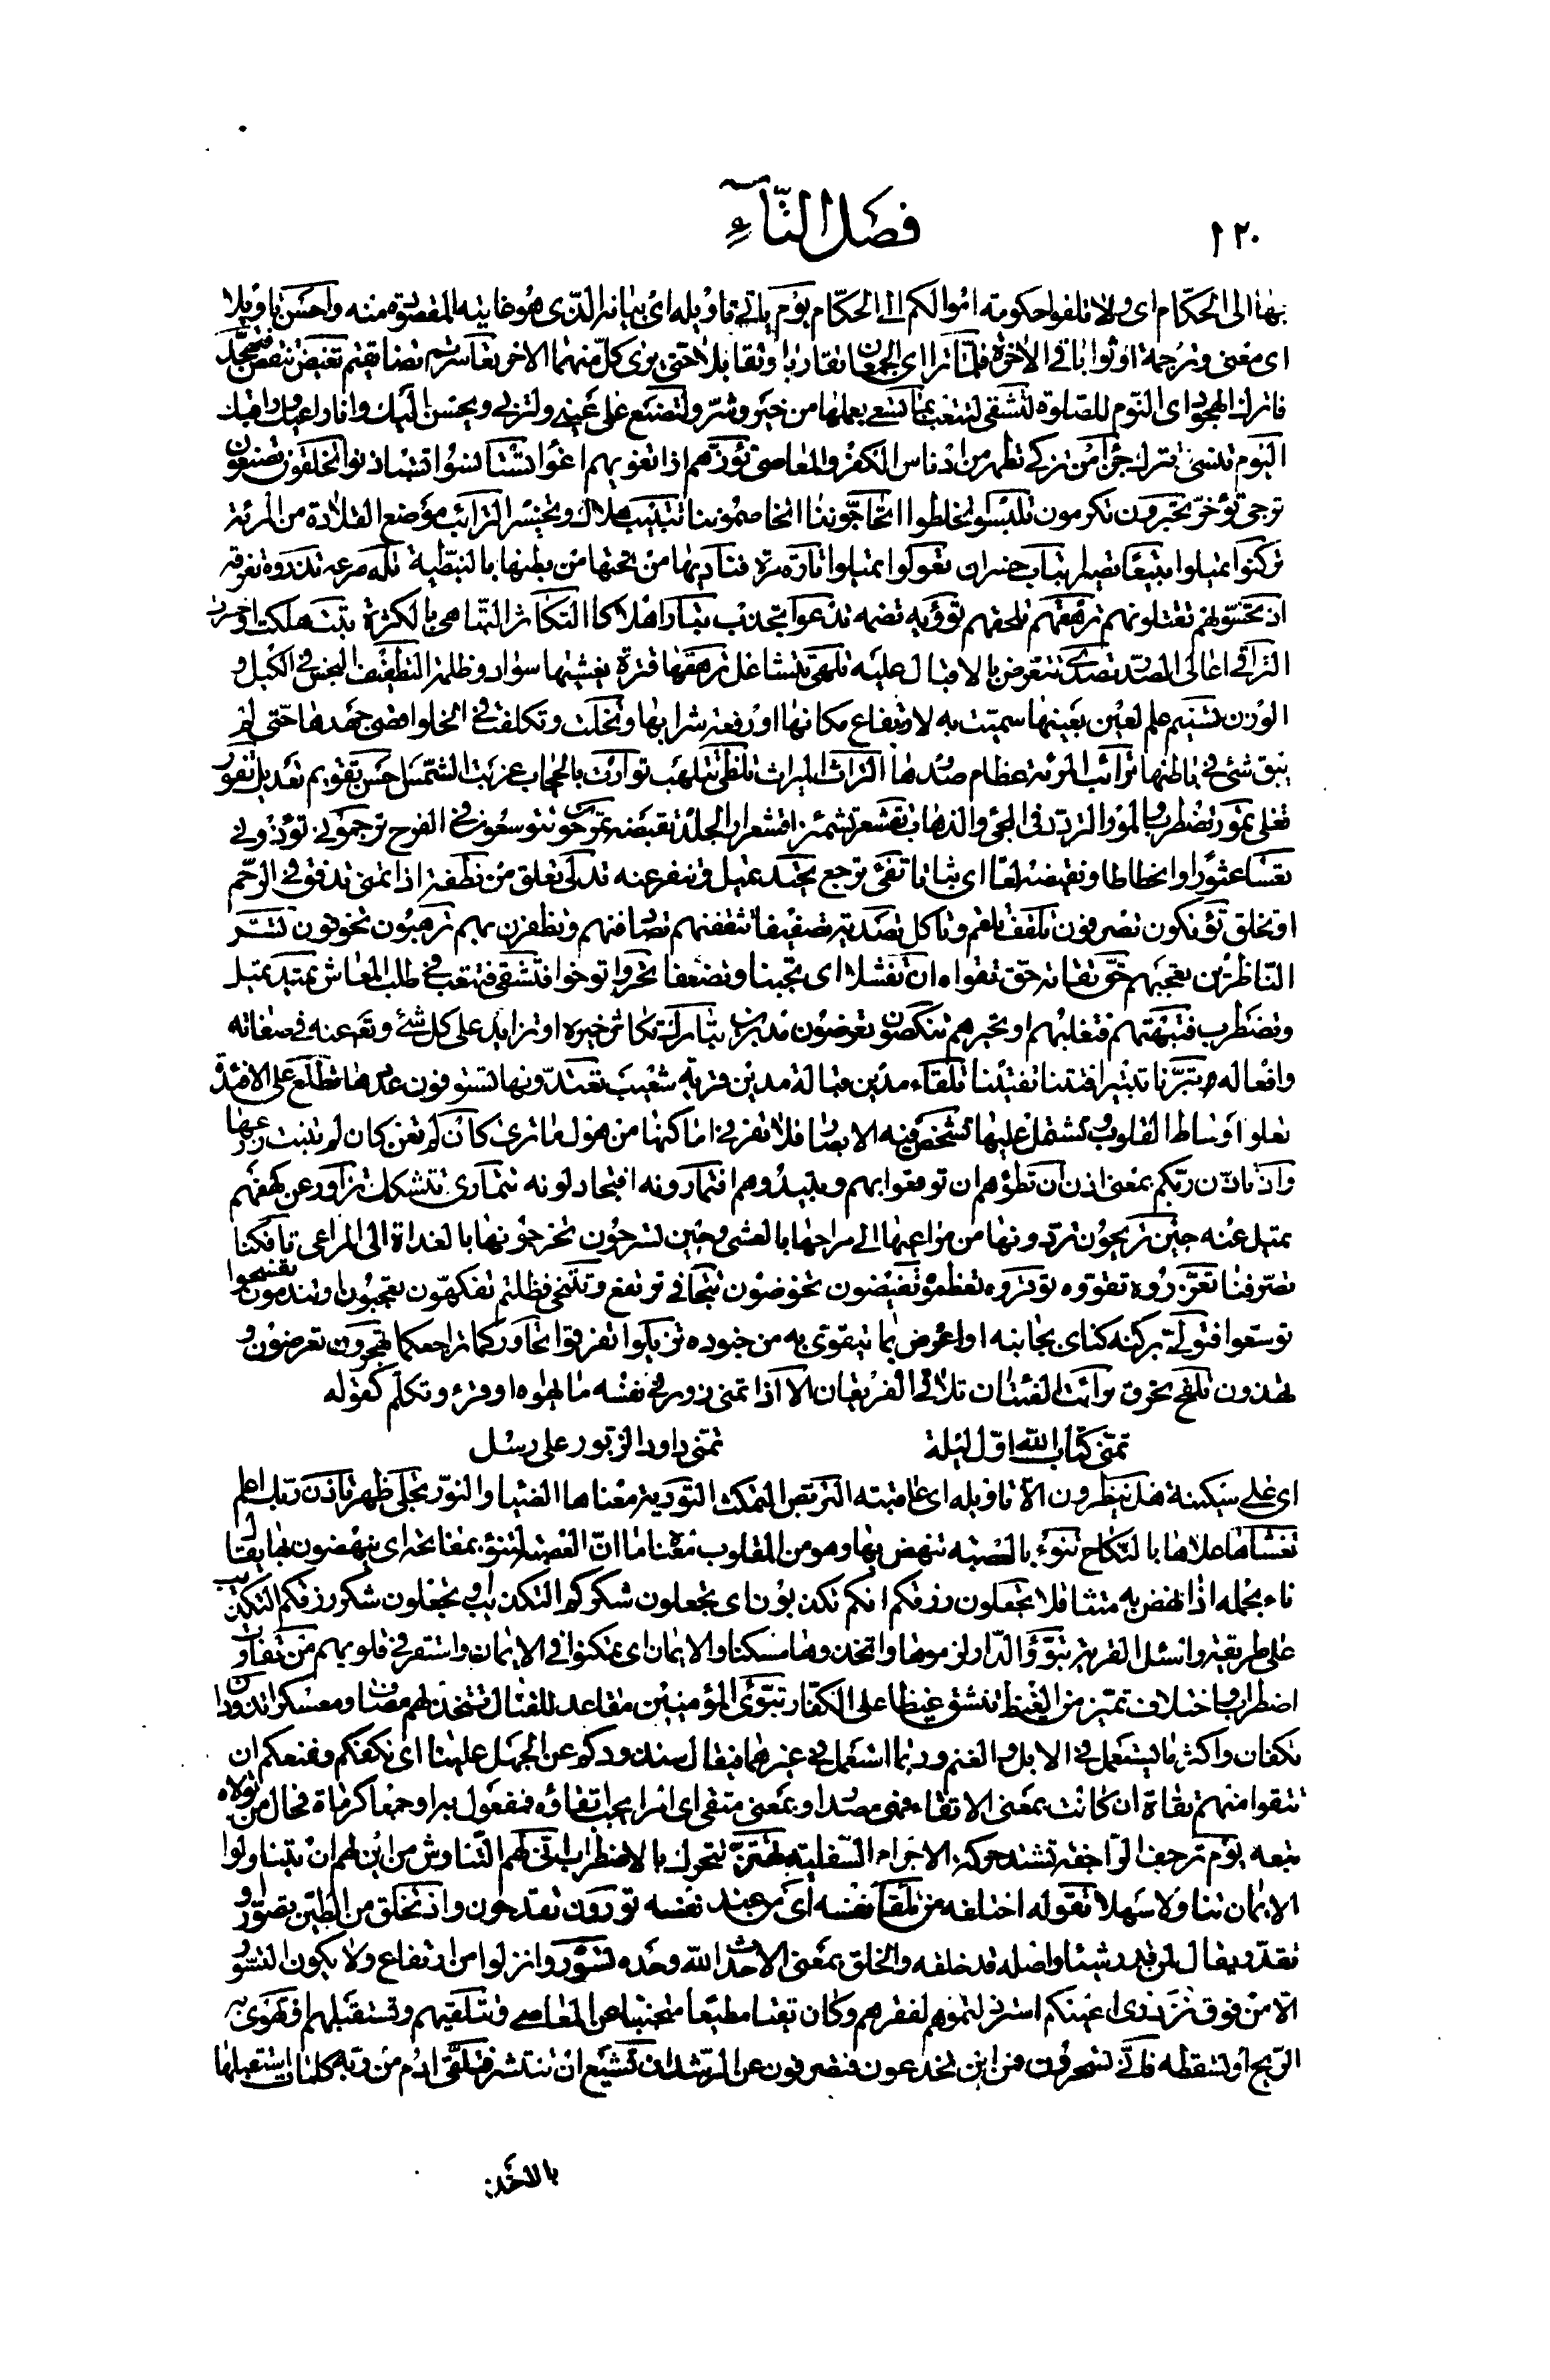 ١٢٠
فصل التّاء
بها الى الحكّام اى ولا تلقوا حكومة اموالكم الى الحكّام يوم ياتى تاويله اى بيانه الذى هو غايته المقصودة منه واحسن تاويلا
اى معنى وترجمة او ثوابا فى الاخرة فلمّا تراا الجمعان تقاربا وتقابلا حتى يرى كلّ منهما الاخر تعاسرتم تضايقتم تغيض تنقص فتهجّد
فاترك الهجود اى النوم للصلوة لتشقى لتتعب بما تسعى بعملها من خير وشرّ ولتصنع على عينى ولتربى ويحسن اليك وانا راعيك وراقبك
اليوم تنسى تترك جزآ من تزكى تطهر من ادناس الكفر والمعاصى تؤزّهم ازا تغويهم اغوآ تستانسوا تستاذنوا تخلقون تصنعون
ترجى تؤخّر تحبرون تكرمون تلبسوا تخلطوا اتحاجّوننا اتخاصموننا تتبيب هلاك وتخسير الترائب موضع القلادة من المرئة
تركنوا تميلوا تبيعا نصيرا تباب خسران تعولوا تميلوا تارة مرة فناديها من تحتها من بطنها بالنبطية تلّه صرعه تذروه تفرقه
اذ تحسّونهم تقتلونهم ترهقهم تلحقهم تؤويه تضمه تدعوا تجذب تبارا هلاكا التكاثر التباهى بالكثرة تبّت هلكت او خسرت
التراقى اعالى الصدر تصدّى تتعرض بالاقبال عليه تلهّى تتشاغل ترهقها قترة يغشيها سواد وظلمة التطفيف البخس فى الكيل و
الوزن تسنيم علم لعين بعينها سميت به لارتفاع مكانها او رفعة شرابها وتخلّت وتكلفت فى الخلو اقصى جهدها حتى لم
يبق شئ فى باطنها ترائب المرئة عظام صدرها التراث الميراث تلظى تتلهب توارت بالحجاب غربت الشمس احسن تقويم تعديل تفور
تغلى تمور تضطرب والمور التردّد فى المجئ والذهاب تقشعر تشمئز اقشعرار الجلد تقبضه تمرحون تتوسعون فى الفرح ترجمون تؤذونى
تعسا عثورا وانحطاطا ونقيضه لعا اى ثباتا تفئ ترجع تحيد تميل وتنفر عنه تدلّى تعلق من نطفة اذا تمنى تدفق فى الرحم
او تخلق تؤفكون تصرفون تلقف تلقم وتاكل تصدية تصفيفا تثقفنهم تصادفنهم وتظفرن بهم ترهبون تخوفون تسر
الناظرين تعجبهم حق تقاته حق تقواه ان تفشلا اى تجبنا وتضعفا تحروا توخوا فتشقى فتتعب فى طلب المعاش تميد تميل
وتضطرب فتبهتهم فتغلبهم او تحيرهم تنكصون تعرضون مدبرين تبارك تكاثر خيره او تزايد على كل شئ وتعالى عنه فى صفاته
وافعاله تبّرنا تتبيرا فتتنا تفتيتنا تلقاء مدين قبالة مدين قرية شعيب تعتدّونها تستوفون عددها تطّلع على الافئدة
تعلوا اوساط القلوب وتشتمل عليها تشخص فيه الابصار فلا تقر فى اماكنها من هول ما ترى كان لم تغن كان لم تنبت زرعها
واذ تاذّن ربّكم بمعنى اذن ان تطؤهم ان توقعوا بهم وتبيدوهم افتمارونه افتجادلونه تتمارى تتشكك تزاور عن كهفهم
تميل عنه حين تريحون تردونها من مراعيها الى مراحها بالعشى وحين تسرحون تخرجونها بالغداة الى المراعى تافكنا
تصرفنا تعزّروه تقووه توقروه تعظموه تفيضون تخوضون تتجافى ترتفع وتتنحى فظلتم تفكهون تعجبون او تندمون تفسحوا
توسعوا فتولى بركنه كناى بجانبه او اعرض بما يتقوى به من جنوده تزيلوا تفرقوا تحاوركما تراجعكما تهجرون تعرضون و
تهذون تلفح تحرق تراءت الفئتان تلاقى الفريقان الا اذا تمنى زور فى نفسه ما يهواه او قرء وتكلم كقوله
تمنّى كتاب الله اول ليلة تمنى داود الزبور على رسل
اى على سكينة هل ينظرون الا تاويله اى عاقبته التربص التمكث التورية معناها الضياء والنور تجلّى ظهر تاذن ربك اعلم
تغشاها علاها بالنكاح تنوء بالعصبة تنهض بها وهو من المقلوب معناه ما انّ العصبة لتنوء بمفاتحه اى ينهضون بها يقال
ناء بحمله اذا نهض به متثاقلا تجعلون رزقكم انكم تكذبون اى تجعلون شكركم التكذيب او تجعلون شكر رزقكم التكذيب
على طريقة واسئل القرية تبوّؤ الدار لزموها واتخذوها مسكنا والايمان اى تمكنوا فى الايمان واستقر فى قلوبهم من تفاوت
اضطراب واختلاف تميّز من الغيظ تنشق غيظا على الكفار تبوّئ المؤمنين مقاعد للقتال تتخذ لهم مصاف ومعسكرا تذودان
تكفان واكثر ما يستعمل فى الابل والغنم وربما استعمل فى غيرهما فيقال سنذودكم عن الجهل علينا اى نكفكم ونمنعكم ان
تتقوا منهم تقاة ان كانت بمعنى الاتقاء فهى مصدر او بمعنى متقى اى امرا يجب اتقاؤه فمفعول به او جمعا كرماة فحال من تولاه
تبعه يوم ترجف الراجفة تشتد حركة الاجرام السفلية تهتزّ تتحرك بالاضطراب انّى لهم التناوش من اين لهم ان يتناولوا
الايمان تناولا سهلا تقوله اختلقه من تلقاء نفسه اى من عند نفسه تورون تقدحون واذ تخلق من الطين تصوّر و
تقدّر يقال لمن قدر شيئا واصلحه قد خلقه والخلق بمعنى الاحداث لله وحده تسوّروا نزلوا من ارتفاع ولا يكون التسور
الا من فوق تزدرى اعينكم استرذلتموهم لفقرهم وكان تقيا مطيعا متجنبا عن المعاصى فتتلقيهم وتستقبلهم او تهوى به
الريح او تسقطه فانّى تسحرون فمن اين تخدعون فتصرفون عن الرشد ان تشيع ان تنتشر فتلقّى ادم من ربه كلمات استقبلها
بالاخذ